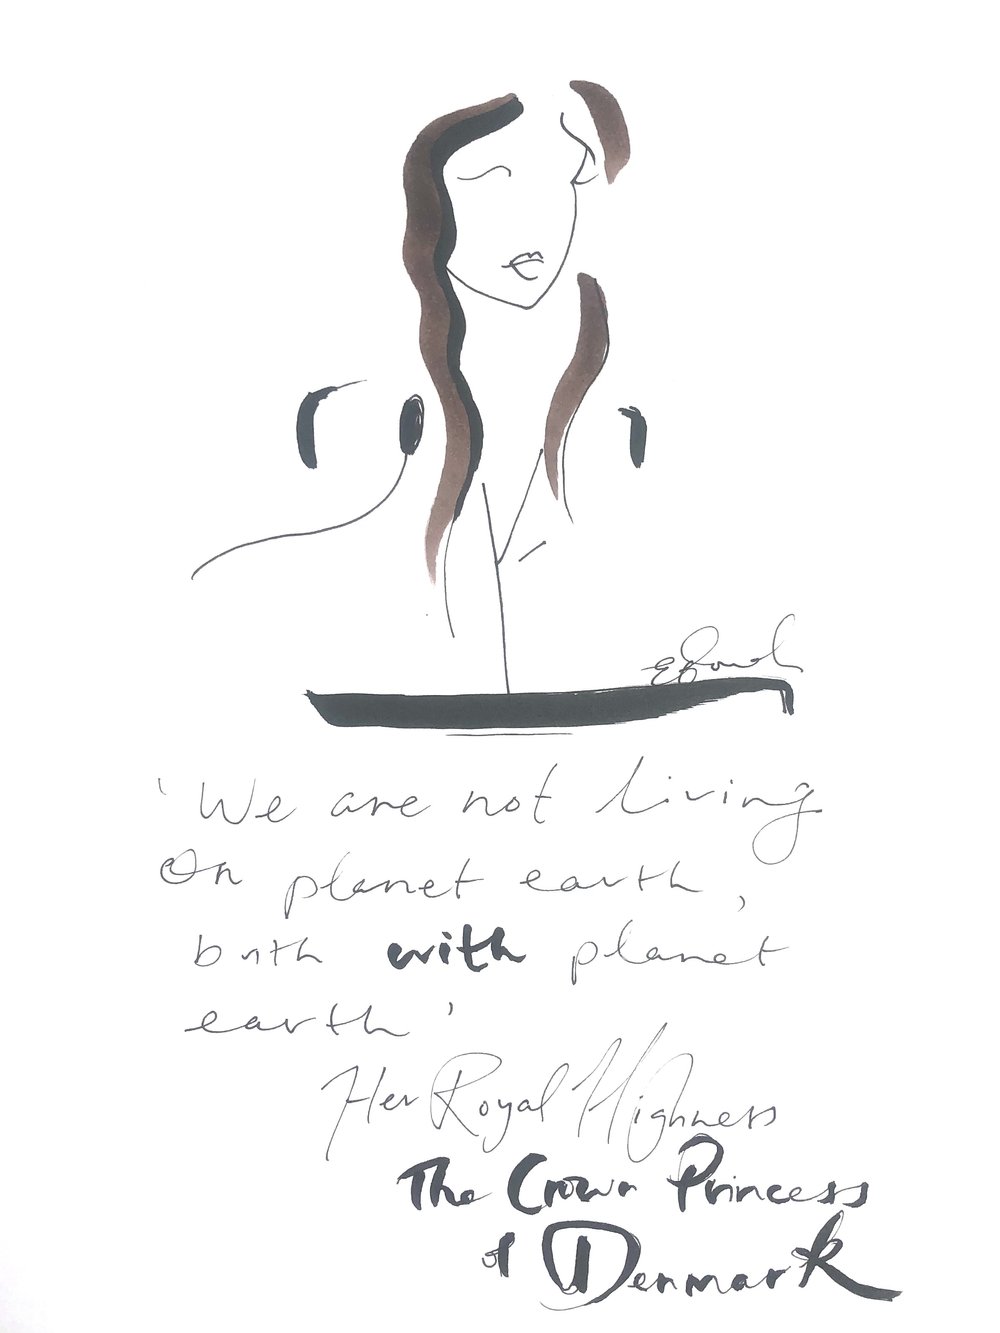 'We are not living
On planet earth,
buth with planet
earth'
Her Royal Highness
The Crown Princess
of Denmark